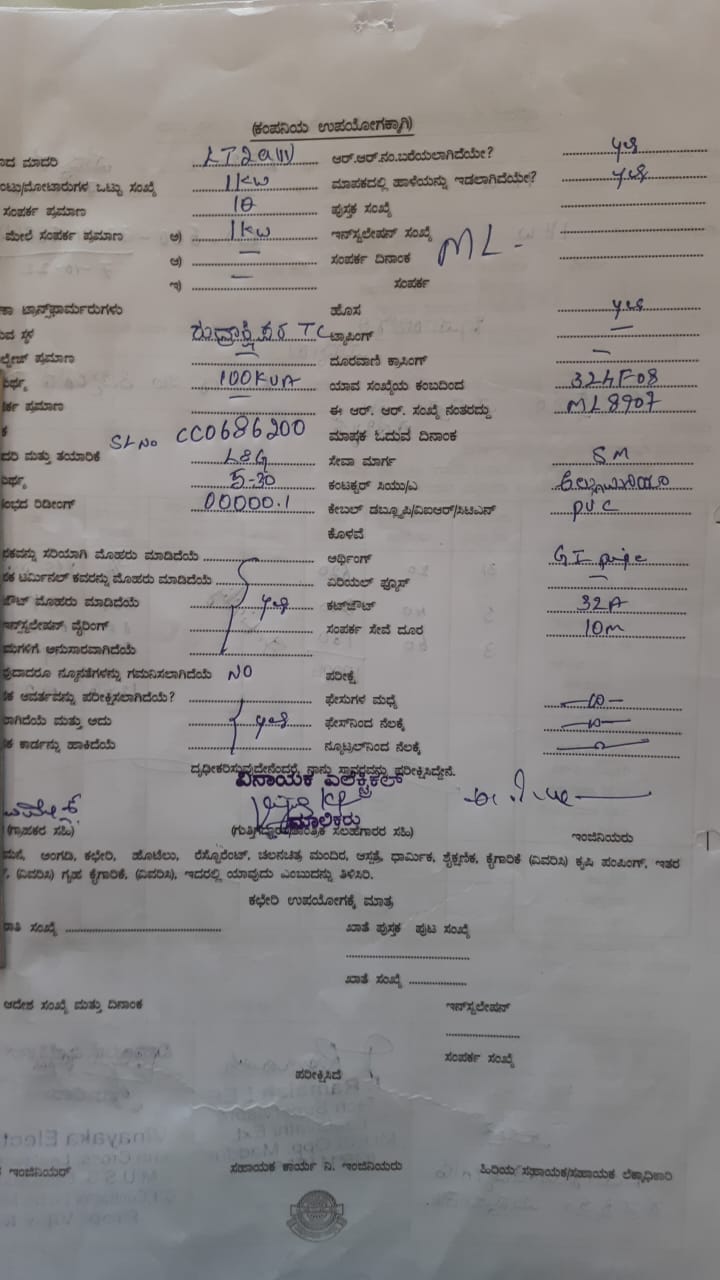 (ಕಂಪನಿಯ ಉಪಯೋಗಕ್ಕಾಗಿ)
ಮಾದರಿ LT2a(ii) ಆರ್.ಆರ್.ನಂ.ಬರೆಯಲಾಗಿದೆಯೇ? yes
ಒಟ್ಟು ಸಂಖ್ಯೆ 1kw ಮಾಪಕದಲ್ಲಿ ಹಾಳೆಯನ್ನು ಇಡಲಾಗಿದೆಯೇ? yes
ಸಂಪರ್ಕ ಪ್ರಮಾಣ ಪುಸ್ತಕ ಸಂಖ್ಯೆ
ಮೇಲೆ ಸಂಪರ್ಕ ಪ್ರಮಾಣ ಅ) 1kw ಇನ್‌ಸ್ಟಲೇಷನ್ ಸಂಖ್ಯೆ ML -
ಆ) — ಸಂಪರ್ಕ ದಿನಾಂಕ
ಇ) — ಸಂಪರ್ಕ
ಟ್ರಾನ್ಸ್‌ಫಾರ್ಮರುಗಳು ಹೊಸ yes
ಸ್ಥಳ TC ಟ್ಯಾಪಿಂಗ್ —
ಪ್ರಮಾಣ — ದೂರವಾಣಿ ಕ್ರಾಸಿಂಗ್ —
100KVA ಯಾವ ಸಂಖ್ಯೆಯ ಕಂಬದಿಂದ 324F08
ಪ್ರಮಾಣ — ಈ ಆರ್. ಆರ್. ಸಂಖ್ಯೆ ನಂತರದ್ದು ML8907
SL No CC0686200 ಮಾಪಕ ಓದುವ ದಿನಾಂಕ
ಮತ್ತು ತಯಾರಿಕೆ L&G ಸೇವಾ ಮಾರ್ಗ SM
5-30 ಕಂಟಕ್ಟರ್ ಸಿಯು/ಎ
ರಿಡೀಂಗ್ 00000.1 ಕೇಬಲ್ ಡಬ್ಲ್ಯೂಪಿ/ವಿಐಆರ್/ಸಿಟಿಎನ್ PVC
ಕೊಳವೆ
ಸರಿಯಾಗಿ ಮೊಹರು ಮಾಡಿದೆಯೆ ಆರ್ಥಿಂಗ್ GI pipe
ಟರ್ಮಿನಲ್ ಕವರನ್ನು ಮೊಹರು ಮಾಡಿದೆಯೆ ಏರಿಯಲ್ ಫ್ಯೂಸ್ —
ಮೊಹರು ಮಾಡಿದೆಯೆ yes ಕಟ್‌ಔಟ್ 32A
ಇನ್‌ಸ್ಟಲೇಷನ್ ವೈರಿಂಗ್ ಸಂಪರ್ಕ ಸೇವೆ ದೂರ 10m
ಅನುಸಾರವಾಗಿದೆಯೆ
ನ್ಯೂನತೆಗಳನ್ನು ಗಮನಿಸಲಾಗಿದೆಯೆ NO ಪರೀಕ್ಷೆ
ಆವರ್ತವನ್ನು ಪರೀಕ್ಷಿಸಲಾಗಿದೆಯೆ? ಫೇಸುಗಳ ಮಧ್ಯೆ
ಮತ್ತು ಅದು yes ಫೇಸ್‌ನಿಂದ ನೆಲಕ್ಕೆ
ಕಾರ್ಡನ್ನು ಹಾಕಿದೆಯೆ ನ್ಯೂಟ್ರಲ್‌ನಿಂದ ನೆಲಕ್ಕೆ
ದೃಢೀಕರಿಸುವುದೇನೆಂದರೆ, ನಾನು ಸ್ಥಾವರವನ್ನು ಪರೀಕ್ಷಿಸಿದ್ದೇನೆ.
ವಿನಾಯಕ ಎಲೆಕ್ಟ್ರಿಕಲ್
ಮಾಲೀಕರು
(ಗ್ರಾಹಕರ ಸಹಿ) ಸಲಹೆಗಾರರ ಸಹಿ) ಇಂಜಿನಿಯರು
ಮನೆ, ಅಂಗಡಿ, ಕಛೇರಿ, ಹೊಟೆಲು, ರೆಸ್ಟೊರೆಂಟ್, ಚಲನಚಿತ್ರ ಮಂದಿರ, ಆಸ್ಪತ್ರೆ, ಧಾರ್ಮಿಕ, ಶೈಕ್ಷಣಿಕ, ಕೈಗಾರಿಕೆ (ವಿವರಿಸಿ) ಕೃಷಿ ಪಂಪಿಂಗ್, ಇತರ
(ವಿವರಿಸಿ) ಗೃಹ ಕೈಗಾರಿಕೆ, (ವಿವರಿಸಿ), ಇದರಲ್ಲಿ ಯಾವುದು ಎಂಬುದನ್ನು ತಿಳಿಸಿರಿ.
ಕಛೇರಿ ಉಪಯೋಗಕ್ಕೆ ಮಾತ್ರ
ಸಂಖ್ಯೆ ಖಾತೆ ಪುಸ್ತಕ ಪುಟ ಸಂಖ್ಯೆ
ಖಾತೆ ಸಂಖ್ಯೆ
ಆದೇಶ ಸಂಖ್ಯೆ ಮತ್ತು ದಿನಾಂಕ ಇನ್‌ಸ್ಟಲೇಷನ್
ಸಂಪರ್ಕ ಸಂಖ್ಯೆ
ಪರೀಕ್ಷಿಸಿದೆ
ಇಂಜಿನಿಯರ್ ಸಹಾಯಕ ಕಾರ್ಯ ನಿ. ಇಂಜಿನಿಯರು ಹಿರಿಯ ಸಹಾಯಕ/ಸಹಾಯಕ ಲೆಕ್ಕಾಧಿಕಾರಿ